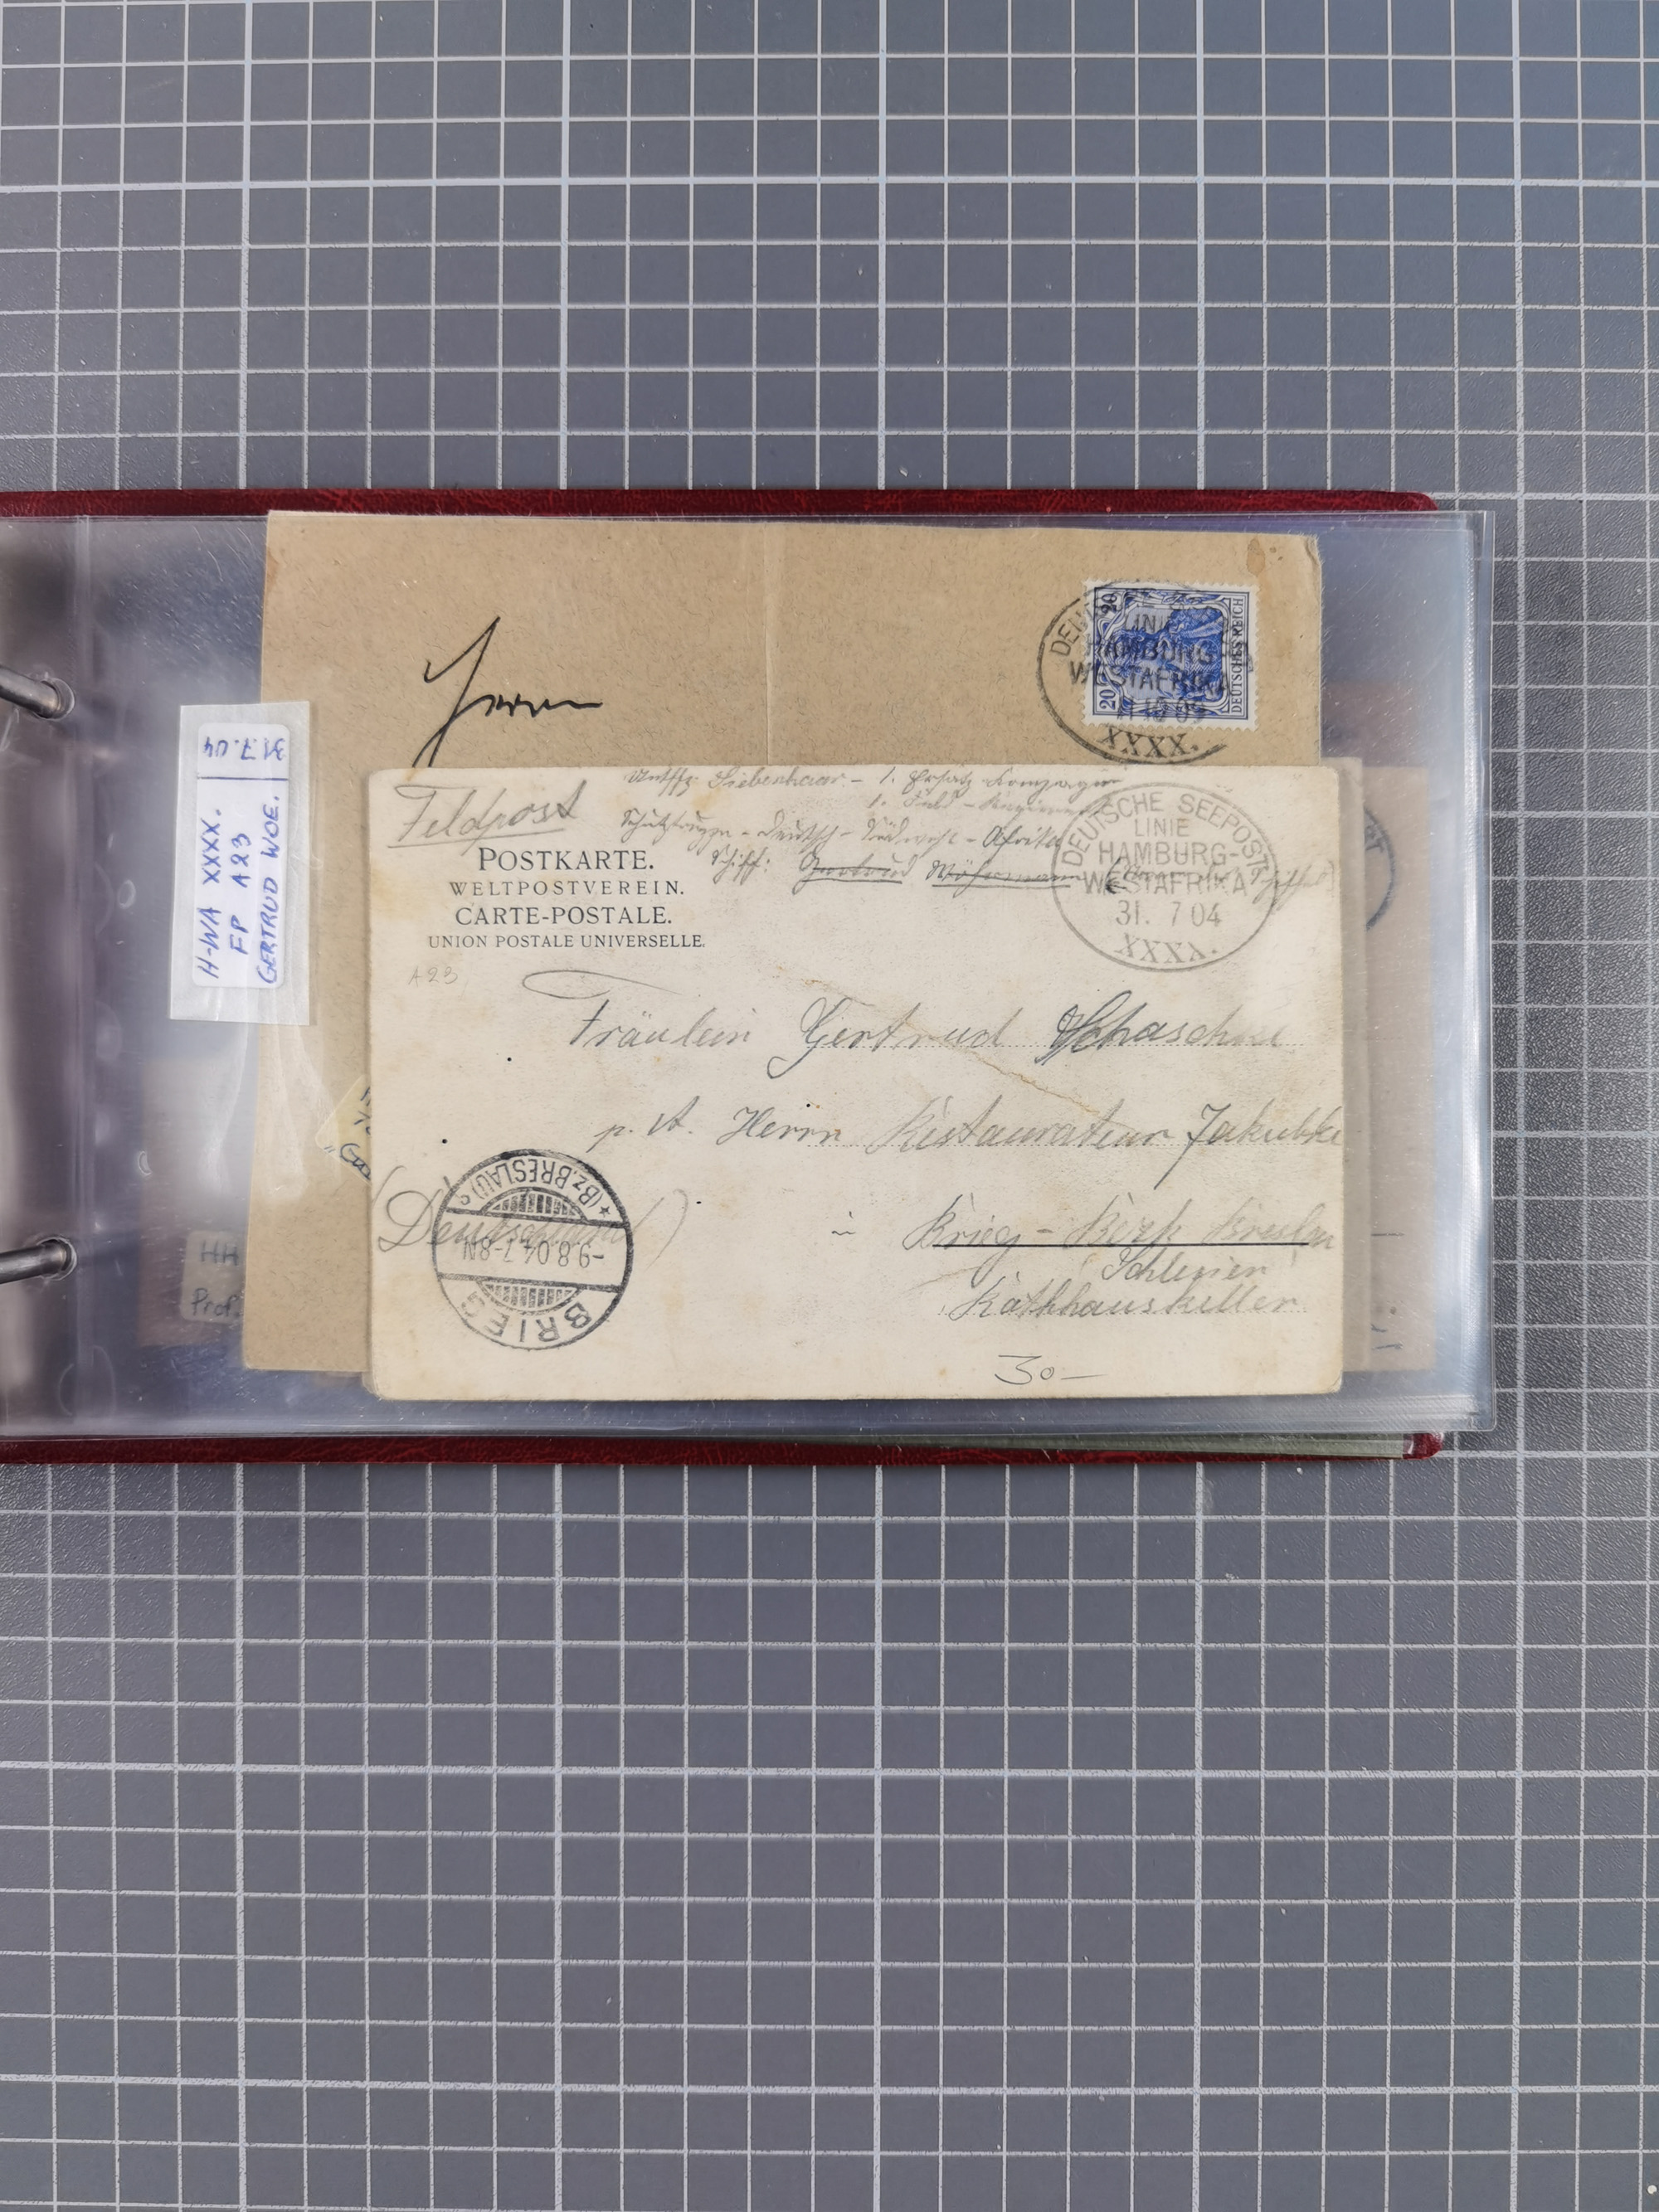 DEUTSCHES REICH
20
20
LINIE
HAMBURG-
WESTAFRIKA
XXXX.
Herrn
31.7.04
H-WA XXXX.
FP A23
GERTRUD WOE.
Feldpost
Siebenhaar - 1. Ersatz-Kompagnie
1. Feld-Regiment
Schutztruppe - Deutsch-Südwest-Afrika
Schiff: Gertrud Woermann
POSTKARTE.
WELTPOSTVEREIN.
CARTE-POSTALE.
UNION POSTALE UNIVERSELLE.
DEUTSCHE SEEPOST
LINIE
HAMBURG-
WESTAFRIKA
31. 7 04
XXXX.
A23
Fräulein Gertrud
p. A. Herrn Restaurateur
(Deutschland)
in Brieg - Bezk Breslau
Schlesien
Rathhauskeller
BRIEG
-9.8.04.7-8N
*(Bz.BRESLAU)
30-
HH
Prof.